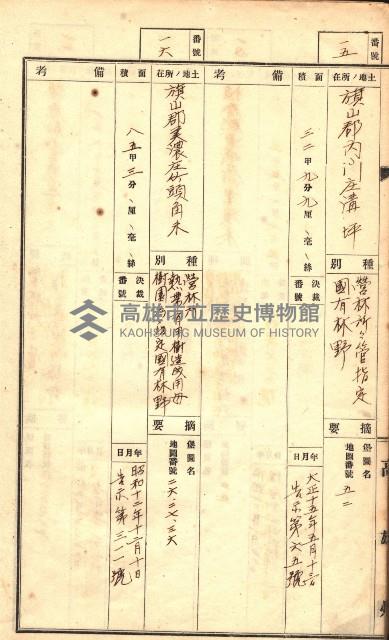 番號
一五
土地ノ所在
旗山郡內門庄溝坪
面積
三二甲九分九厘、毫、絲
備考
種別
營林所所管指定
國有林野
決裁番號
摘要
堡圖名
地圖番號 五二
年月日
大正十五年五月十三日
告示第六五號
番號
一六
土地ノ所在
旗山郡美濃庄竹頭角
面積
八五甲三分、厘、毫、絲
備考
種別
營林所
熱帶有用樹造成用母
樹園指定國有林野
決裁番號
摘要
堡圖名
地圖番號 二六、二七、三六
年月日
昭和十二年十二月十日
告示第三一一號
高雄州
高雄市立歷史博物館
KAOHSIUNG MUSEUM OF HISTORY